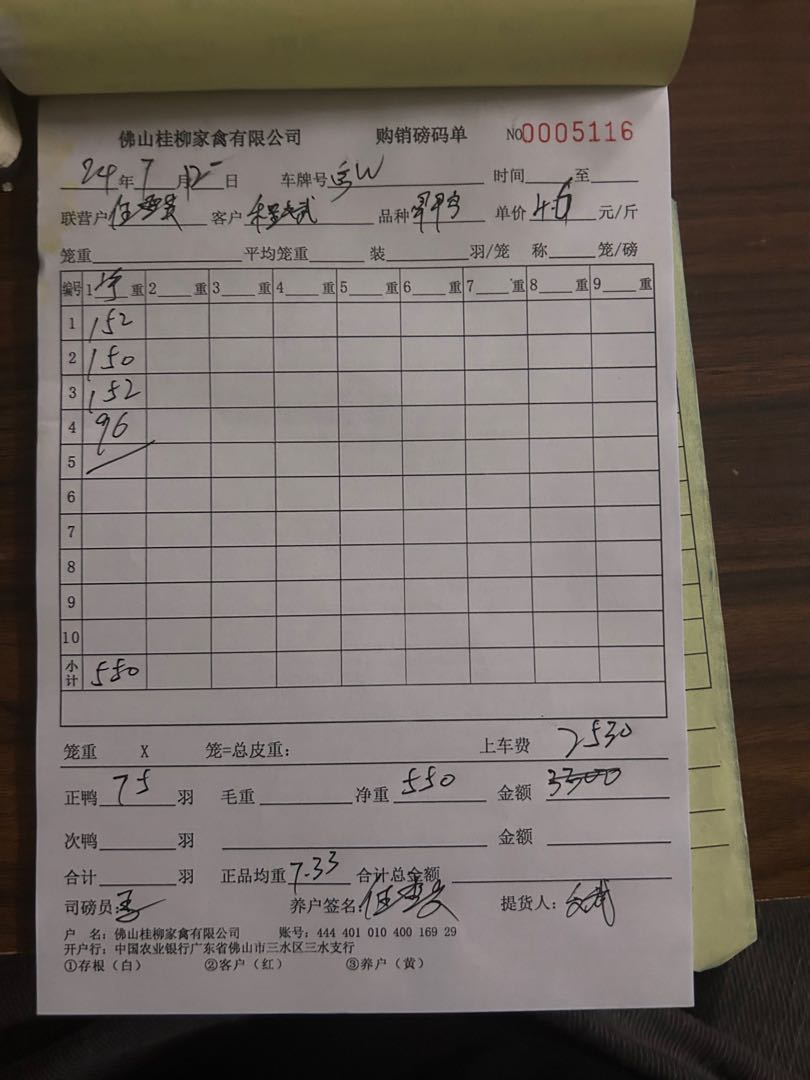 佛山桂柳家禽有限公司 购销磅码单 NO0005116
24年7月12日 车牌号 W 时间 至
联营户 客户 品种 单价4.6元/斤
笼重 平均笼重 装 羽/笼 称 笼/磅
编号 1净重 2 重 3 重 4 重 5 重 6 重 7 重 8 重 9 重
1 152
2 150
3 152
4 96
5
6
7
8
9
10
小计 550
笼重 X 笼=总皮重: 上车费 2530
正鸭75羽 毛重 净重550 金额3300
次鸭 羽 金额
合计 羽 正品均重7.33 合计总金额
司磅员: 养户签名: 提货人:
户 名: 佛山桂柳家禽有限公司 账号: 444 401 010 400 169 29
开户行: 中国农业银行广东省佛山市三水区三水支行
①存根(白) ②客户(红) ③养户(黄)